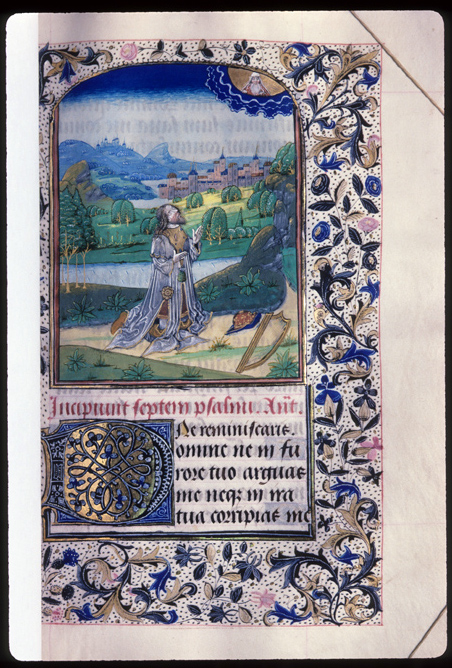 Incipiunt septem psalmi. Ant.
Ne reminiscaris
Domine ne in fu
rore tuo arguas
me neqz in ira
tua corripias me